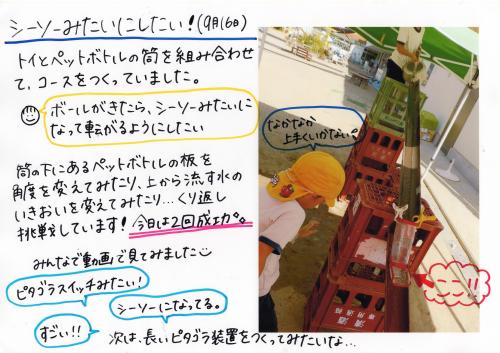 シーソーみたいにしたい！(9月16日)
トイとペットボトルの筒を組み合わせ
て、コースをつくっていました。
ボールがきたら、シーソーみたいに
なって転がるようにしたい
筒の下にあるペットボトルの板を
角度を変えてみたり、上から流す水の
いきおいを変えてみたり…くり返し
挑戦しています！今日は2回成功。
みんなで動画で見てみました
ピタゴラスイッチみたい！
シーソーになってる。
すごい！！
次は、長いピタゴラ装置をつくってみたいな…
なかなか
上手くいかない！
ココ！！